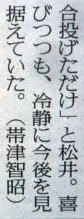 合投げただけ」と松井。喜
びつつも、冷静に今後を見
据えていた。（帯津智昭）